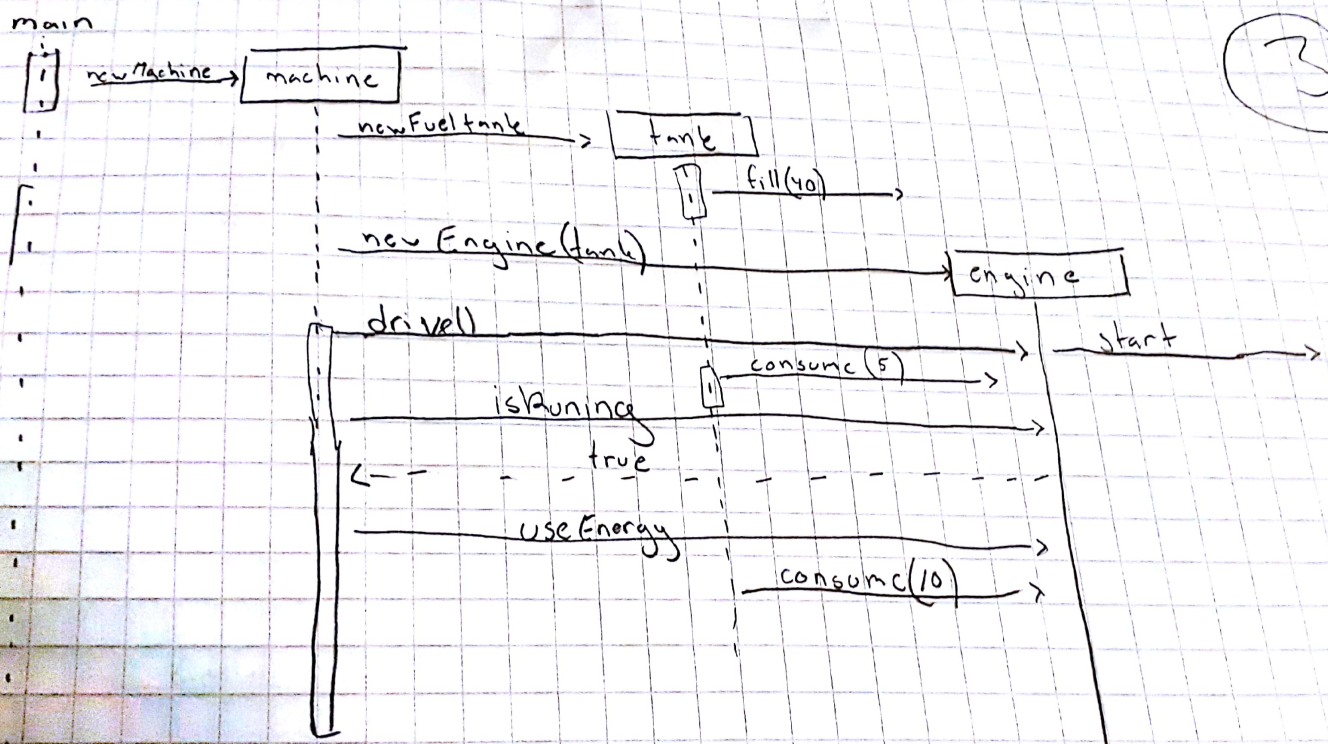 main
3
new Machine
machine
new Fuel tank
tank
fill(40)
new Engine(tank)
engine
drive()
start
consume(5)
isRuning
true
use Energy
consume(10)